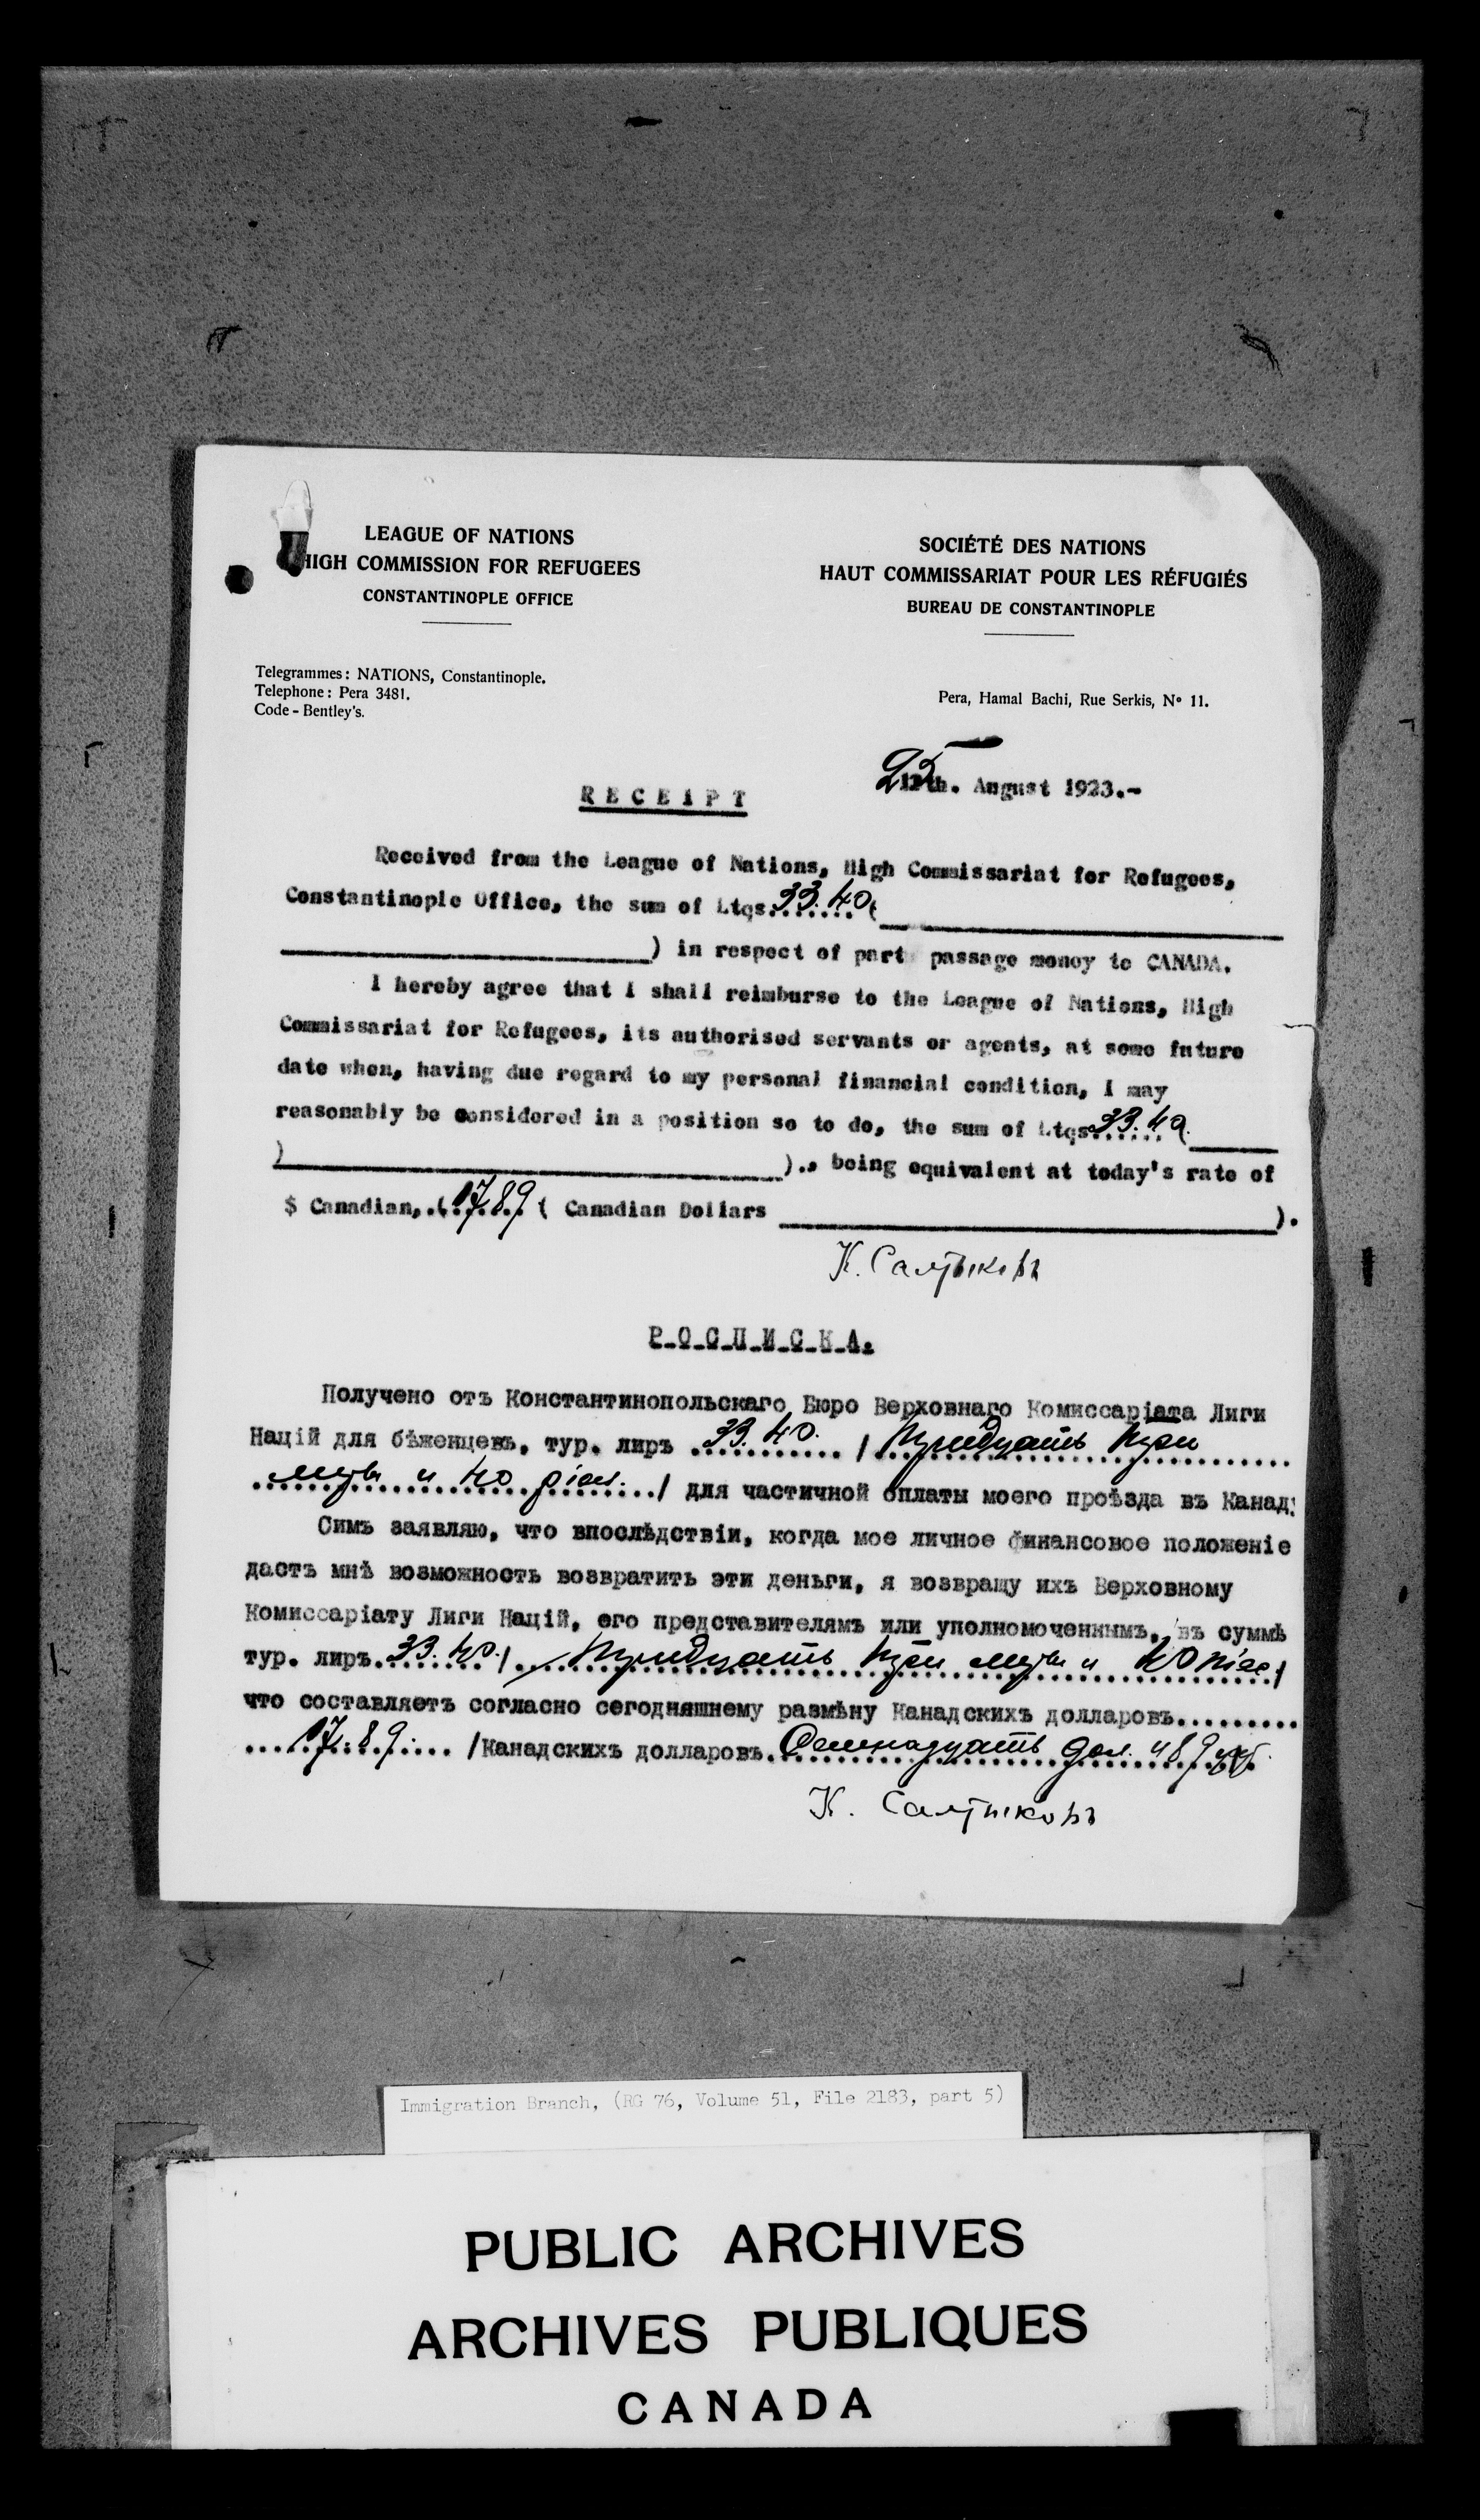 LEAGUE OF NATIONS
HIGH COMMISSION FOR REFUGEES
CONSTANTINOPLE OFFICE
SOCIÉTÉ DES NATIONS
HAUT COMMISSARIAT POUR LES RÉFUGIÉS
BUREAU DE CONSTANTINOPLE
Telegrammes: NATIONS, Constantinople.
Telephone: Pera 3481.
Code - Bentley's.
Pera, Hamal Bachi, Rue Serkis, Nº 11.
25th. August 1923.-
RECEIPT
Received from the League of Nations, High Commissariat for Refugees,
Constantinople Office, the sum of Ltqs.33.40(
) in respect of part passage money to CANADA.
I hereby agree that I shall reimburse to the League of Nations, High
Commissariat for Refugees, its authorised servants or agents, at some future
date when, having due regard to my personal financial condition, I may
reasonably be considered in a position so to do, the sum of Ltqs.33.40(
)., being equivalent at today's rate of
$ Canadian,.(17.89 ( Canadian Dollars ).
К. Салтыковъ
Р-О-С-П-И-С-К-А.
Получено отъ Константинопольскаго Бюро Верховнаго Комиссаріата Лиги
Націй для бѣженцевъ, тур. лиръ 33.40. / Тридцать три
лиры и 40 ріаст./ для частичной оплаты моего проѣзда въ Канад
Симъ заявляю, что впослѣдствіи, когда мое личное финансовое положеніе
дастъ мнѣ возможность возвратить эти деньги, я возвращу ихъ Верховному
Комиссаріату Лиги Націй, его представителямъ или уполномоченнымъ, въ суммѣ
тур. лиръ.33.40./ Тридцать три лиры и 40 піас./
что составляетъ согласно сегодняшнему размѣну Канадскихъ долларовъ.........
17.89. /Канадскихъ долларовъ. Семнадцать дол. и 89 цт.
К. Салтыковъ
Immigration Branch, (RG 76, Volume 51, File 2183, part 5)
PUBLIC ARCHIVES
ARCHIVES PUBLIQUES
CANADA